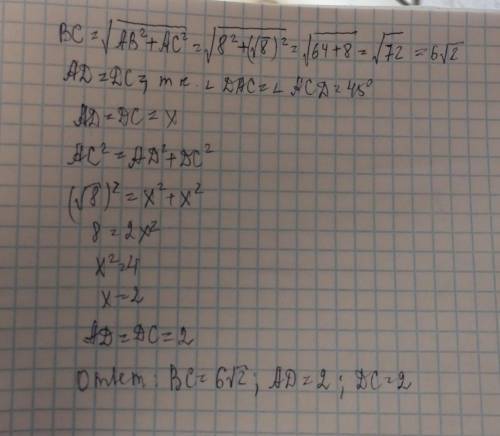 BC = √AB² + AC² = √8² + (√8)² = √64+8 = √72 = 6√2
AD = DC, т к. ∠ DAC = ∠ ACD = 45°
AD = DC = x
AC² = AD² + DC²
(√8)² = x² + x²
8 = 2x²
x² = 4
x = 2
AD = DC = 2
Ответ: BC = 6√2; AD = 2; DC = 2